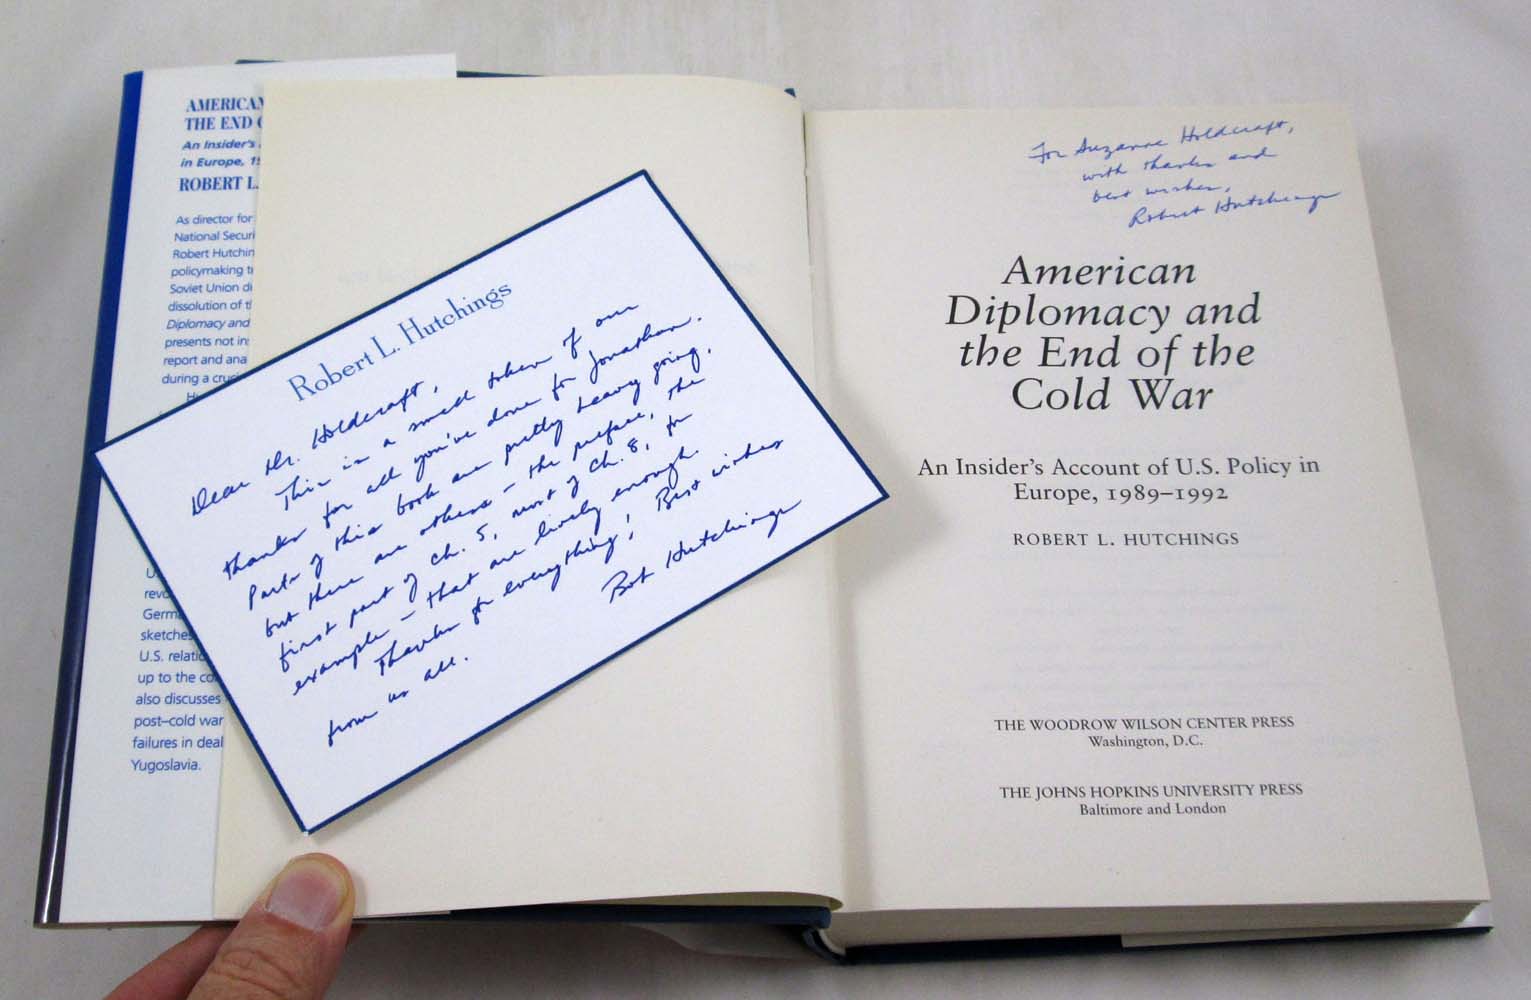 AMERICAN
THE END O
An Insider's
in Europe, 19
ROBERT L.
As director for
National Securi
Robert Hutchin
policymaking t
Soviet Union di
dissolution of t
Diplomacy and
presents not in
report and ana
during a cruc
H
U.
revo
Germ
sketches
U.S. relatio
up to the co
also discusses
post–cold war
failures in deal
Yugoslavia.
Robert L. Hutchings
Dear Dr. Holdcraft,
This is a small token of our
thanks for all you've done for Jonathan.
Parts of this book are pretty heavy going,
but there are others – the preface, the
first part of ch. 5, most of ch. 8, for
example – that are lively enough.
Thanks for everything! Best wishes
from us all.
Bob Hutchings
For Suzanne Holdcraft,
with thanks and
best wishes,
Robert Hutchings
American
Diplomacy and
the End of the
Cold War
An Insider's Account of U.S. Policy in
Europe, 1989–1992
ROBERT L. HUTCHINGS
THE WOODROW WILSON CENTER PRESS
Washington, D.C.
THE JOHNS HOPKINS UNIVERSITY PRESS
Baltimore and London